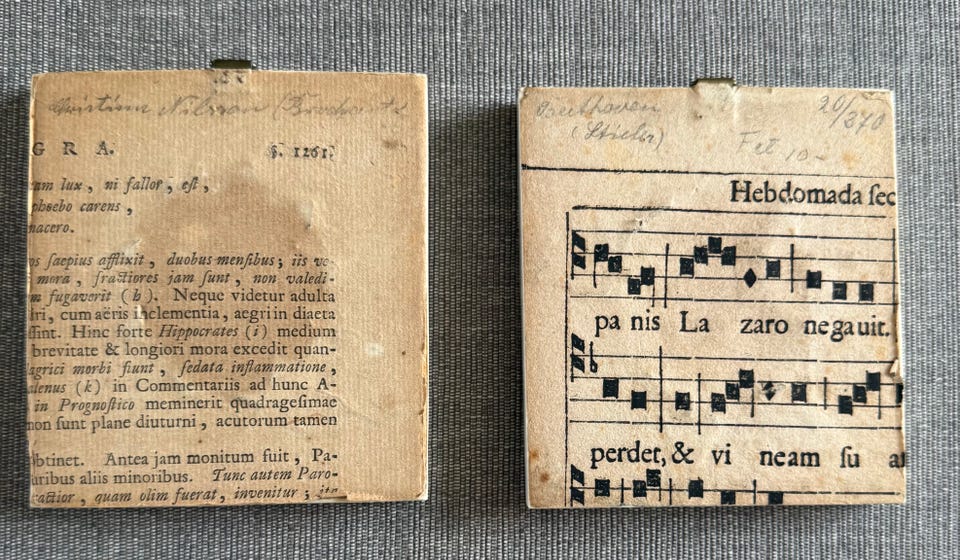 Nilsson
G R A. §. 1261.
am lux , ni fallor , eſt ,
phoebo carens ,
nacero.
os ſaepius afflixit , duobus menſibus ; iis ve-
mora , fractiores jam ſunt , non valedi-
m fugaverit (h). Neque videtur adulta
dri, cum aëris inclementia, aegri in diaeta
ſſint. Hinc forte Hippocrates (i) medium
brevitate & longiori mora excedit quan-
agrici morbi fiunt , ſedata inflammatione ,
alenus (k) in Commentariis ad hunc A-
in Prognoſtico meminerit quadrageſimae
non ſunt plane diuturni , acutorum tamen
btinet. Antea jam monitum fuit , Pa-
uribus aliis minoribus. Tunc autem Paro-
ractior , quam olim fuerat, invenitur ; ita
Beethoven 20/370
(Stieler) 10-
Hebdomada ſec
pa nis La zaro negauit.
perdet, & vi neam ſu a